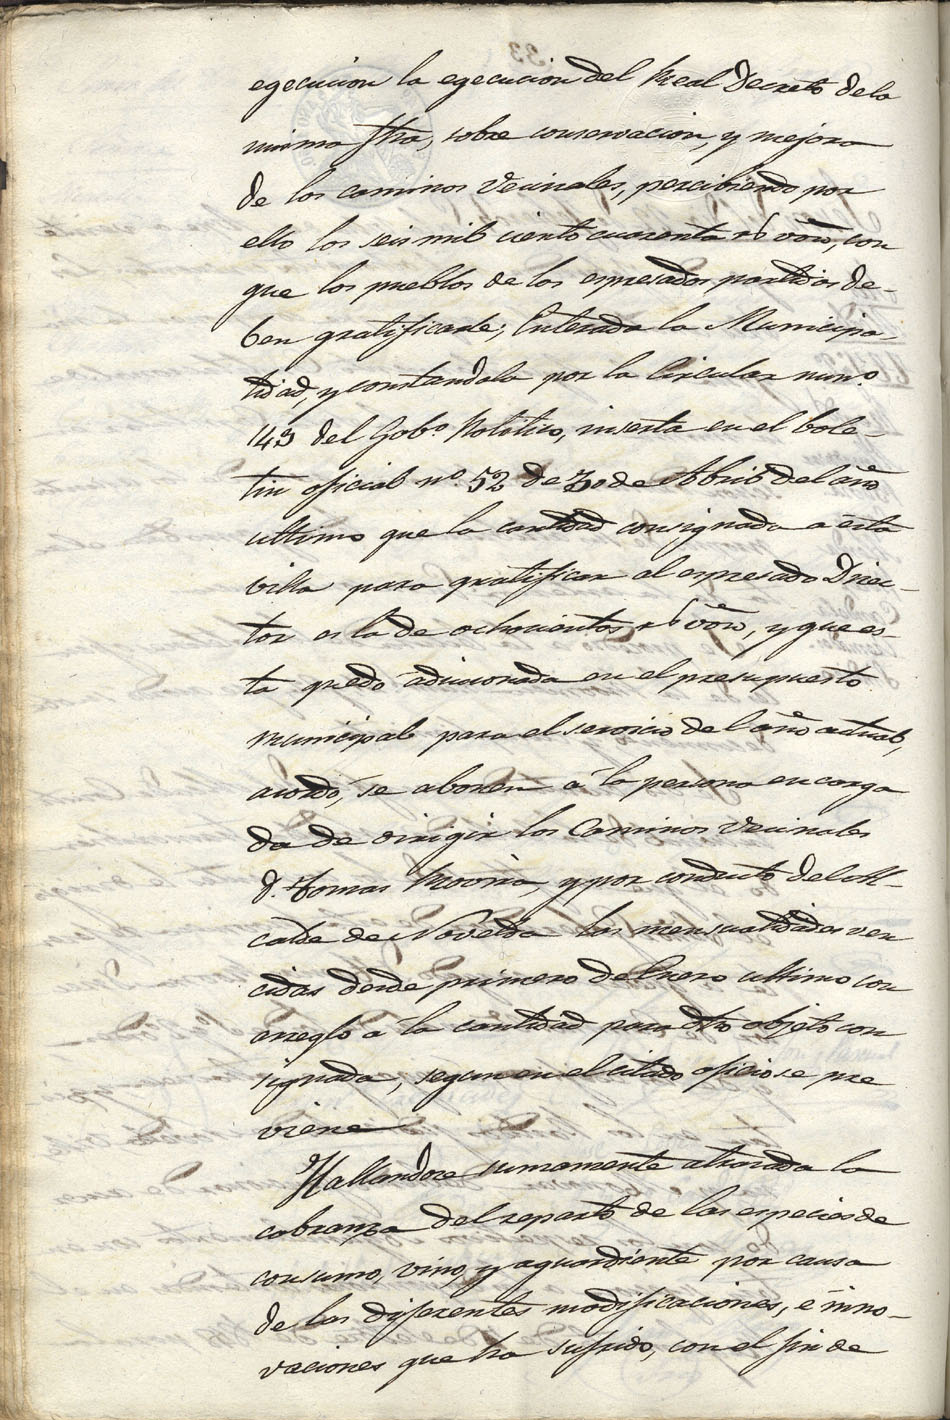 egecucion la egecucion del Real Decreto de la
misma fha, sobre conservacion, y mejora
de los caminos Vecinales, percibiendo por
ello los seis mil ciento cuarenta rs von, con
que los pueblos de los espresados partidos de-
ben gratificarle; Enterada la Municipa-
lidad, y constandola por la Circular num.o
143 del Gob.o Politico, inserta en el bole-
tin oficial n.o 52 de 30 de Abril del año
ultimo que la cantidad consignada a esta
villa para gratificar al espresado Direc-
tor es la de ochocientos rs von, y que es-
ta quedó adicionada en el presupuesto
municipal para el servicio del año actual,
acordó, se abonen a la persona encarga
da de dirigir los Caminos Vecinales
D. Tomas y por conducto del Al-
calde de Novelda las mensualidades ven
cidas desde primero de Enero ultimo con
arreglo a la cantidad para dho objeto con
signada, segun en el citado oficio se pre
viene
Hallandose sumamente atrasada la
cobranza del reparto de las especies de
consumo, vino, y aguardiente por causa
de las diferentes modificaciones, é inno-
vaciones que ha sufrido, con el fin de